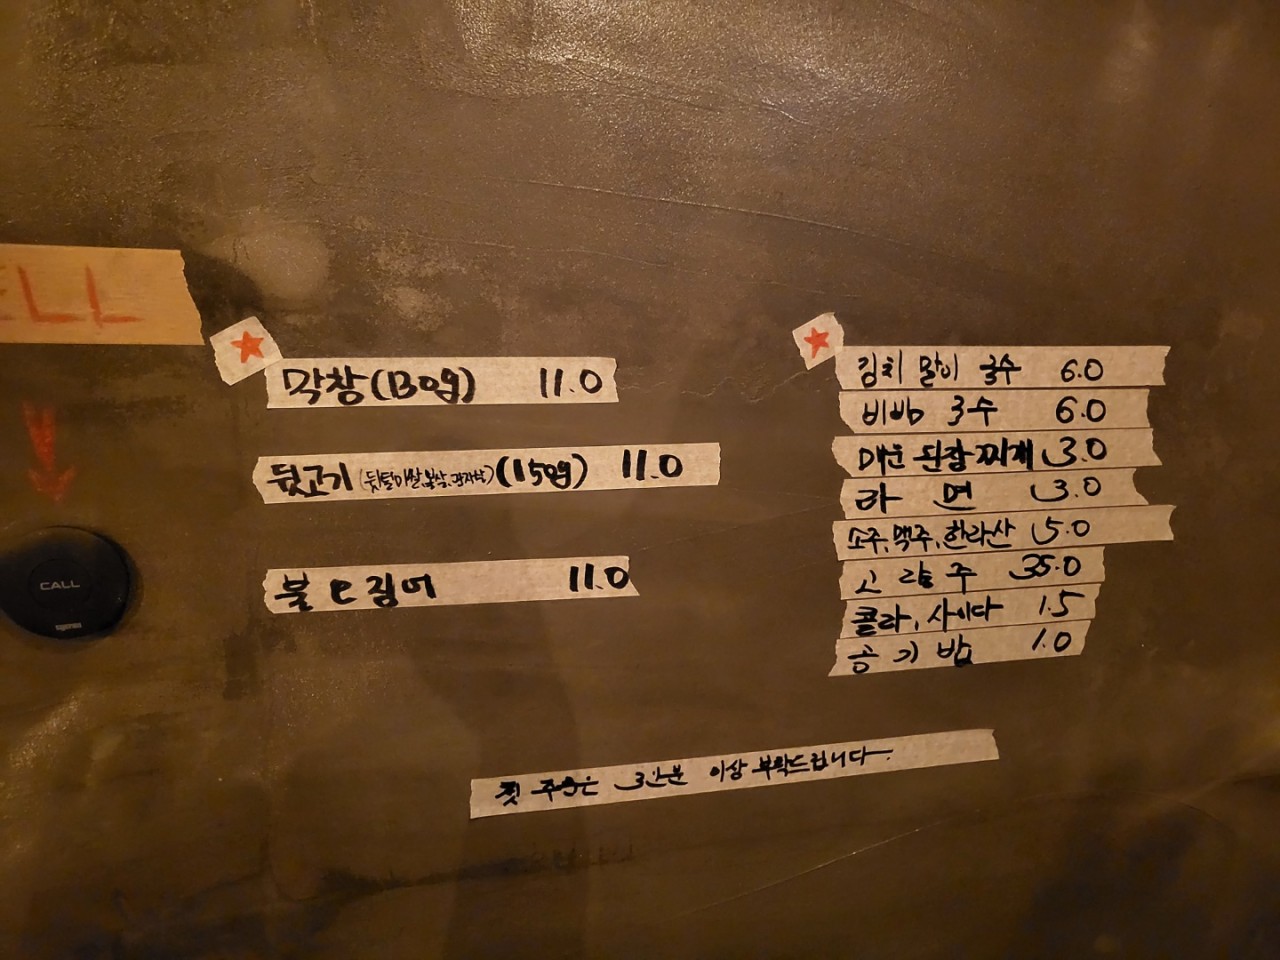 ELL
막창(130g) 11.0
뒷고기 (뒷덜미살,볼살,관자살) (150g) 11.0
불오징어 11.0
CALL
김치말이 국수 6.0
비빔국수 6.0
매운 된장찌개 3.0
라면 3.0
소주,맥주,한라산 5.0
고량주 35.0
콜라, 사이다 1.5
공기밥 1.0
첫 주문은 3인분 이상 부탁드립니다.